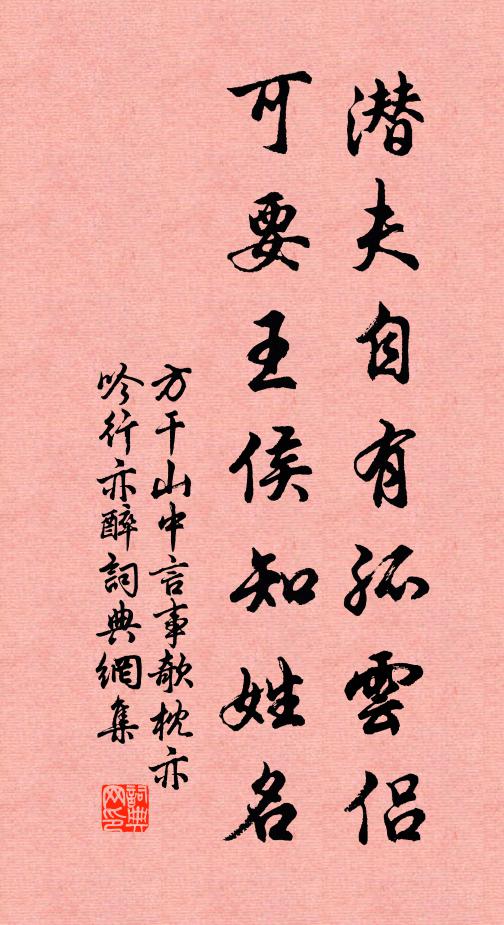 潜夫自有孤雲侶
可要王侯知姓名
方干山中言事欹枕亦
吟行亦醉詞典網集
詞典网印